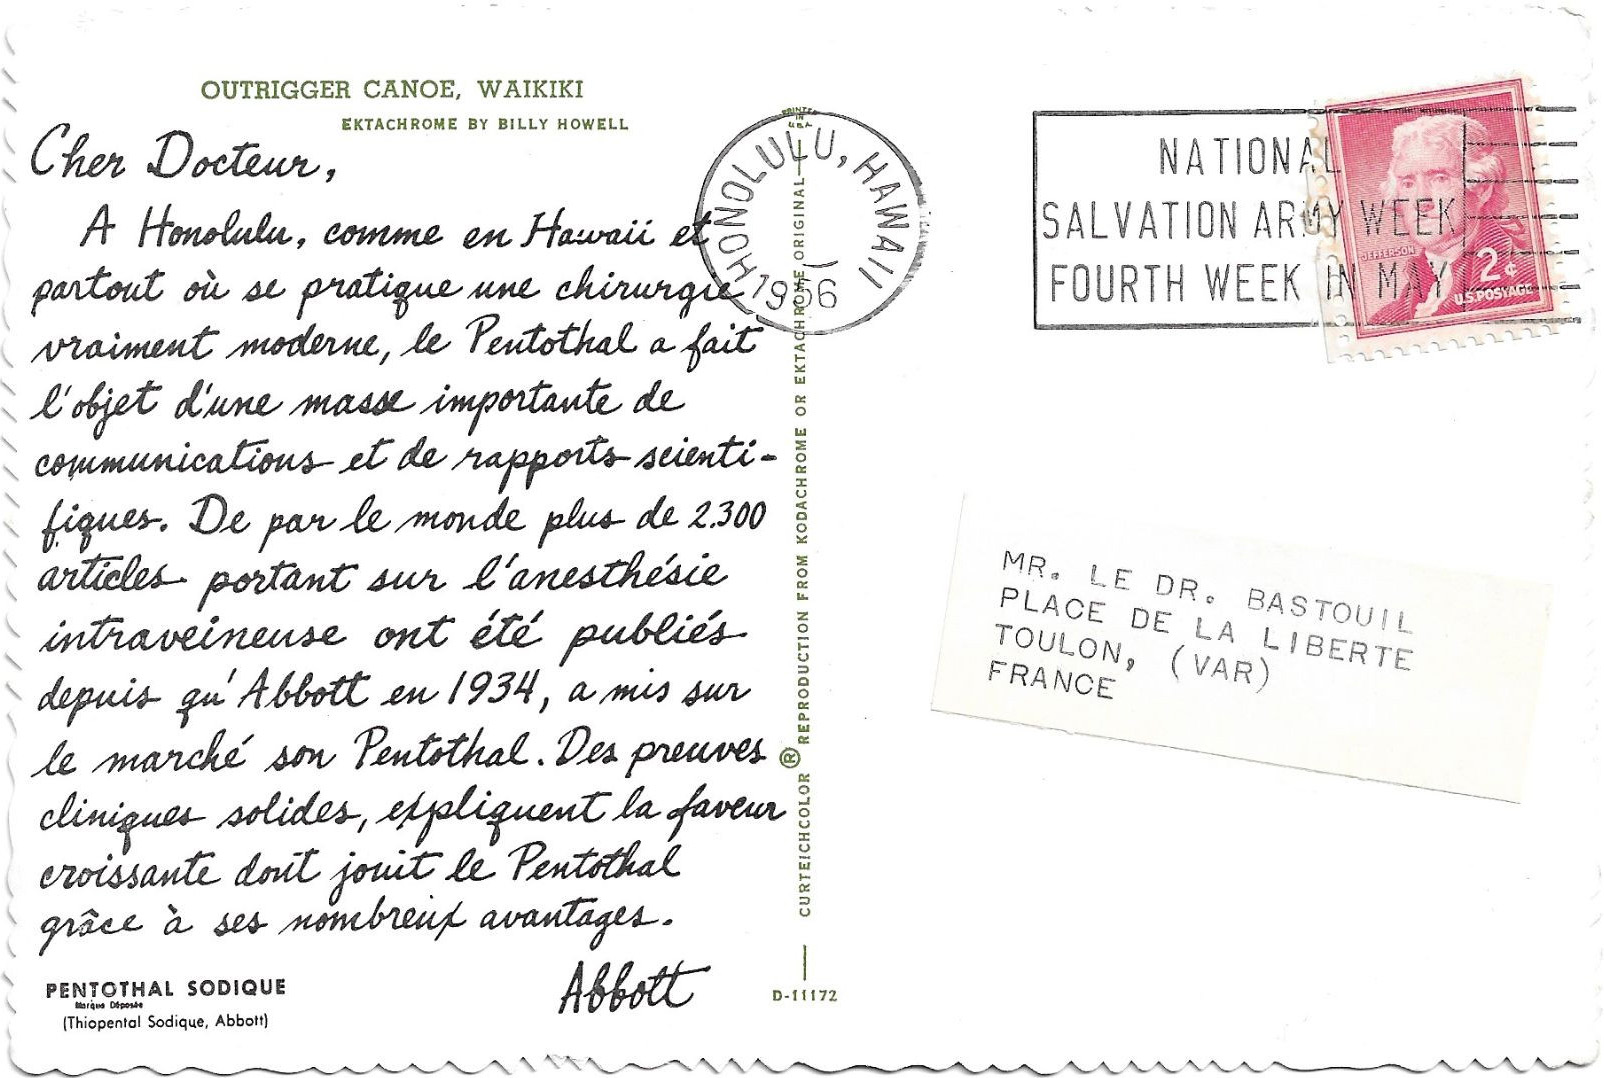 OUTRIGGER CANOE, WAIKIKI
EKTACHROME BY BILLY HOWELL
Cher Docteur,
A Honolulu, comme en Hawaii et
partout où se pratique une chirurgie
vraiment moderne, le Pentothal a fait
l'objet d'une masse importante de
communications et de rapports scienti-
fiques. De par le monde plus de 2.300
articles portant sur l'anesthésie
intraveineuse ont été publiés
depuis qu'Abbott en 1934, a mis sur
le marché son Pentothal. Des preuves
cliniques solides, expliquent la faveur
croissante dont jouit le Pentothal
grâce à ses nombreux avantages.
Abbott
PENTOTHAL SODIQUE
Marque Déposée
(Thiopental Sodique, Abbott)
PRINTED
IN
U.S.A.
CURTEICHCOLOR ® REPRODUCTION FROM KODACHROME OR EKTACHROME ORIGINAL
D-11172
HONOLULU, HAWAII
NATIONAL
SALVATION ARMY WEEK
FOURTH WEEK IN MAY
JEFFERSON
2¢
U.S. POSTAGE
MR. LE DR. BASTOUIL
PLACE DE LA LIBERTE
TOULON, (VAR)
FRANCE